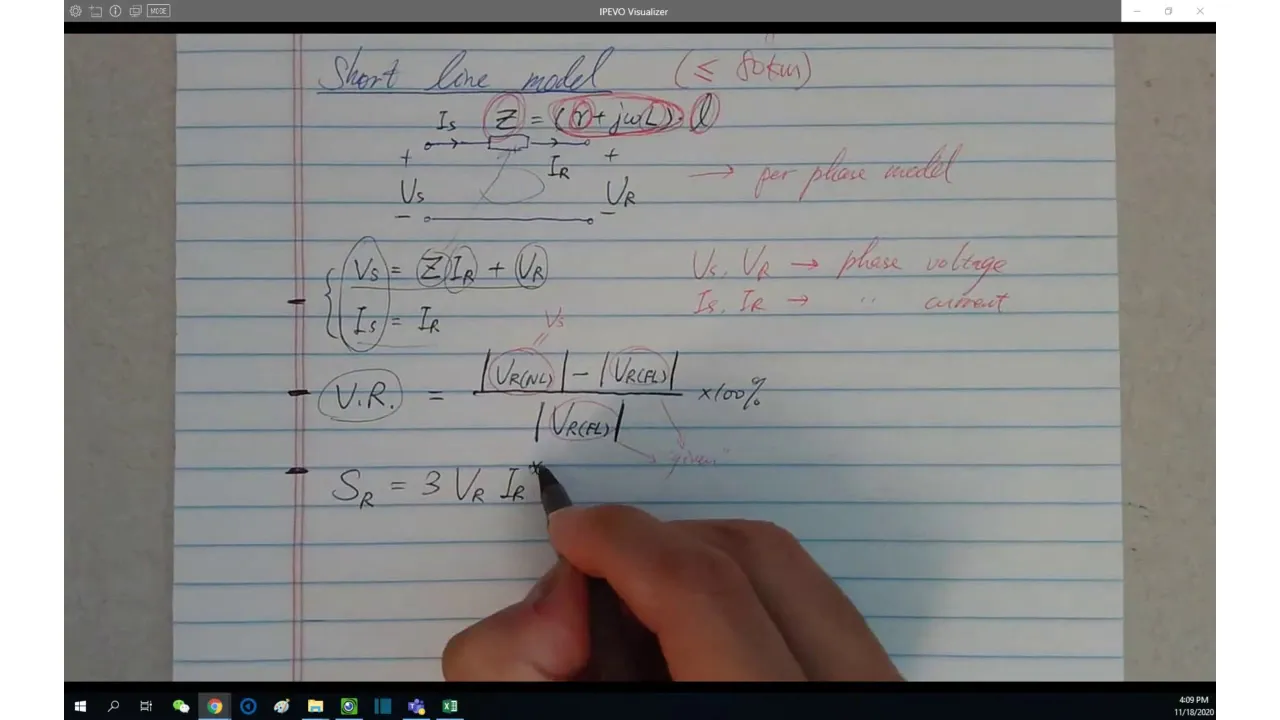 IPEVO Visualizer
MODE
Short line model (≤ 80km)
Is Z = (r + jωL) · l
+ IR +
Vs VR → per phase model
− −
Vs = Z IR + VR Vs, VR → phase voltage
Is = IR Is, IR → '' current
Vs
V.R. = |VR(NL)| − |VR(FL)| / |VR(FL)| ×100%
"given"
SR = 3 VR IR*
4:09 PM
11/18/2020